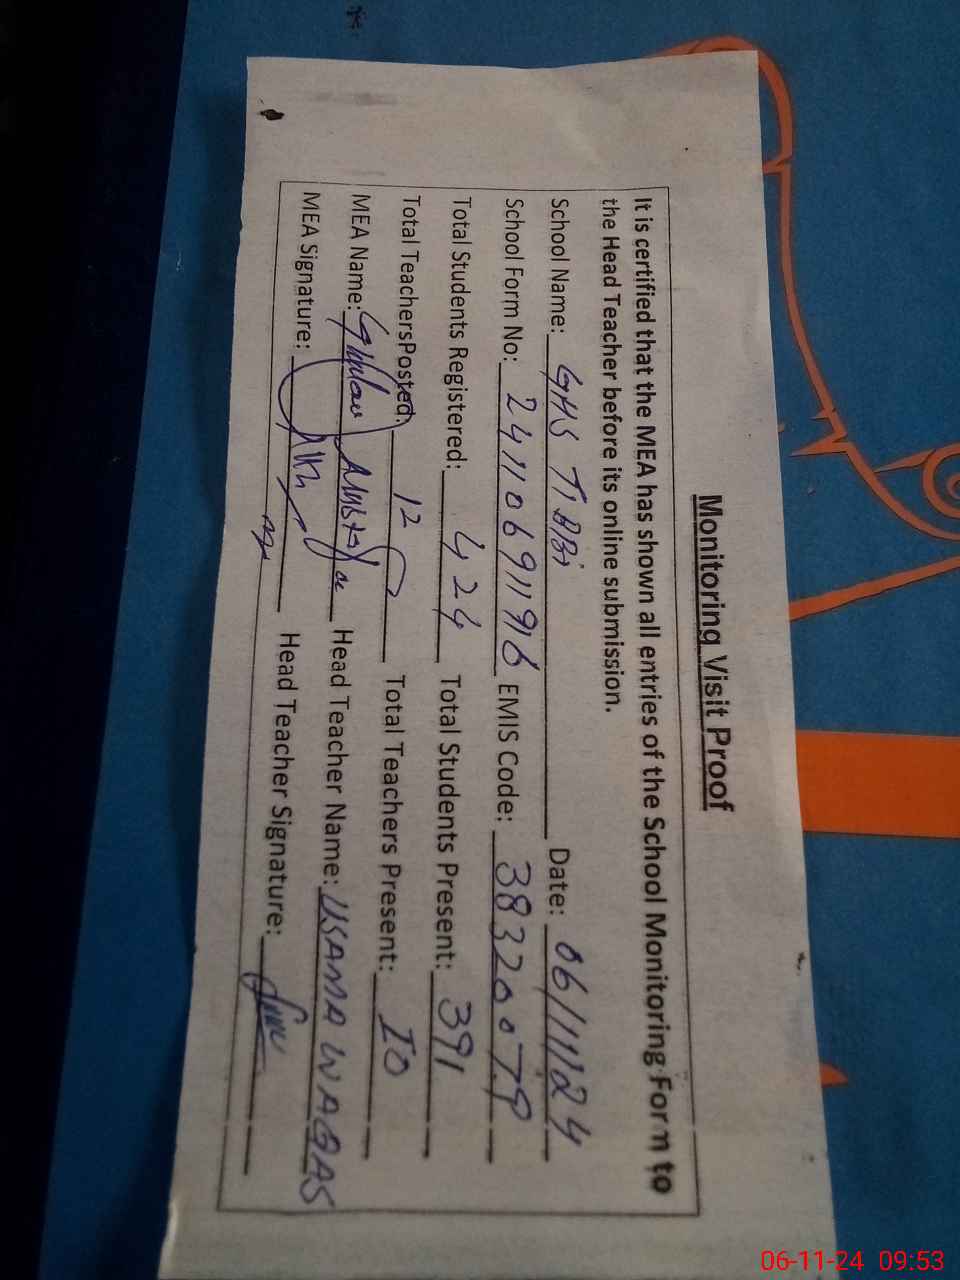 Monitoring Visit Proof
It is certified that the MEA has shown all entries of the School Monitoring Form to
the Head Teacher before its online submission.
School Name: GHS TIBBi Date: 06/11/24
School Form No: 241106911916 EMIS Code: 38320079
Total Students Registered: 424 Total Students Present: 391
Total TeachersPosted: 12 Total Teachers Present: 10
MEA Name: Head Teacher Name: USAMA WAQAS
MEA Signature: Head Teacher Signature:
06-11-24 09:53